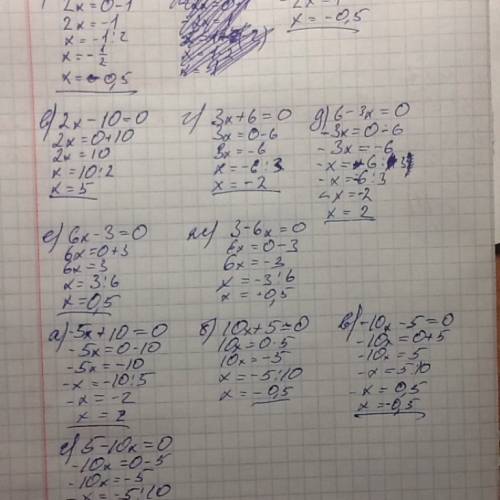 2x=0-1
2x=-1
x=-1:2
x=-1/2
x=-0,5
x=-0,5
в) 2x-10=0
2x=0+10
2x=10
x=10:2
x=5
г) 3x+6=0
3x=0-6
3x=-6
x=-6:3
x=-2
д) 6-3x=0
-3x=0-6
-3x=-6
-x=-6:3
-x=-6:3
-x=-2
x=2
е) 6x-3=0
6x=0+3
6x=3
x=3:6
x=0,5
ж) 3-6x=0
6x=0-3
6x=-3
x=-3:6
x=-0,5
а) -5x+10=0
-5x=0-10
-5x=-10
-x=-10:5
-x=-2
x=2
б) 10x+5=0
10x=0-5
10x=-5
x=-5:10
x=-0,5
в) -10x-5=0
-10x=0+5
-10x=5
-x=5:10
-x=0,5
x=-0,5
г) 5-10x=0
-10x=0-5
-10x=-5
-x=-5:10